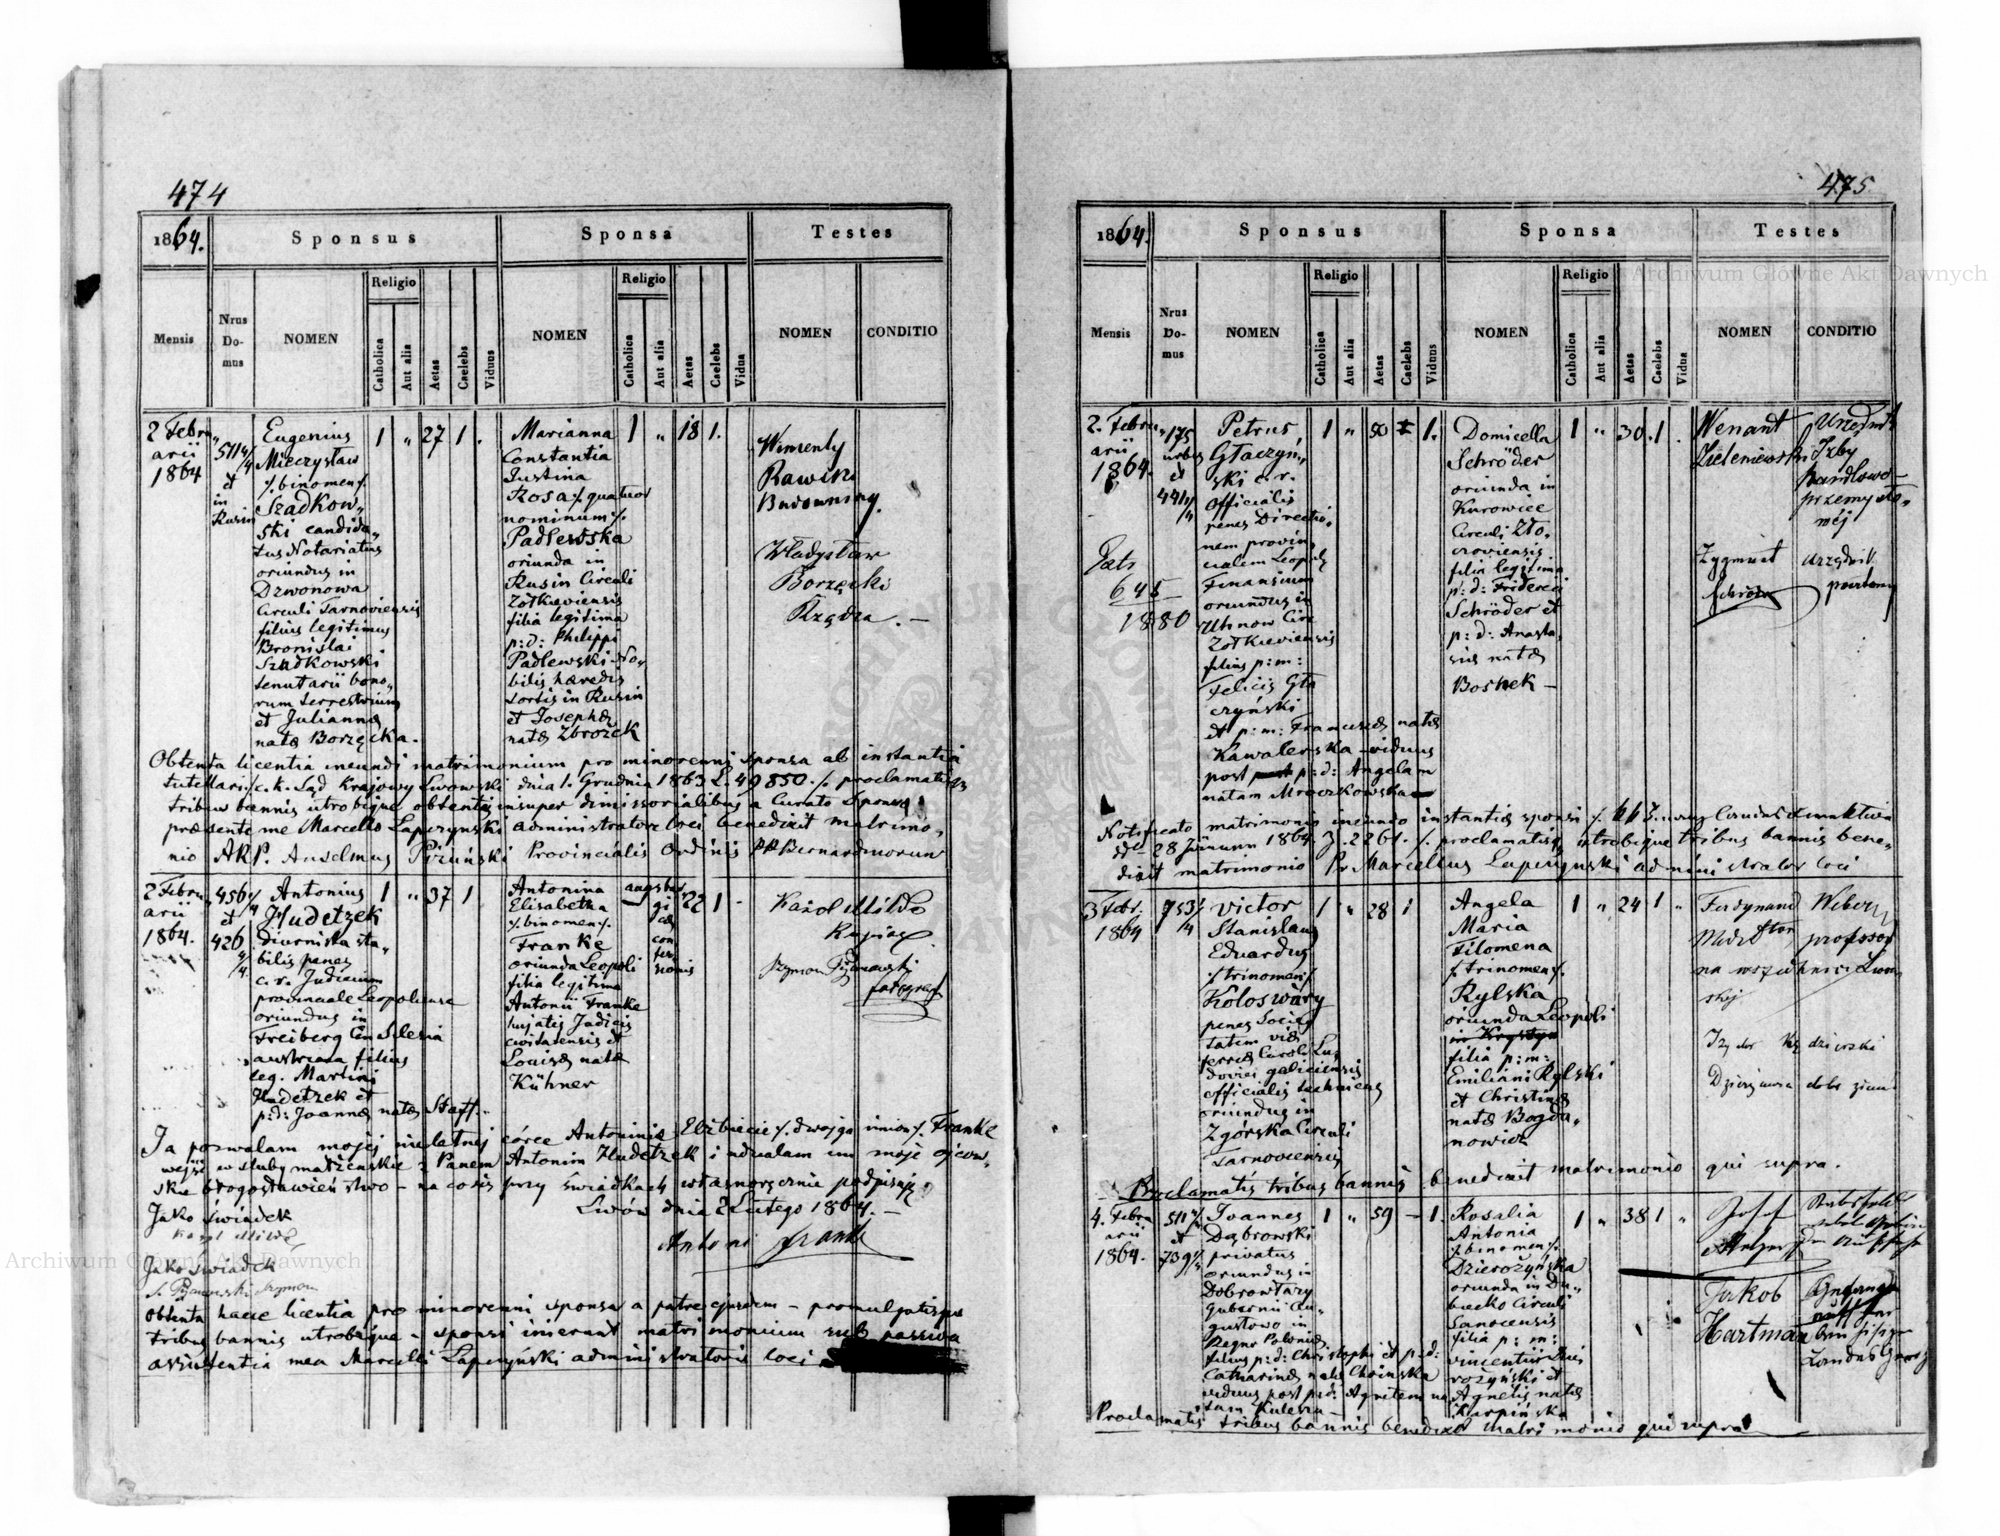 474
1864.
Sponsus
Sponsa
Testes
Mensis
Nrus Domus
NOMEN
Religio
Catholica
Aut alia
Aetas
Caelebs
Viduus
NOMEN
Religio
Catholica
Aut alia
Aetas
Caelebs
Vidua
NOMEN
CONDITIO
2 Febru„
arii
1864
511 4/4
et
in
Rusin
Eugenius
Mieczysław
/. binomen /.
Szadkow„
ski candida„
tus Notariatus
oriundus in
Dzwonowa
Circuli Tarnoviensis
filius legitimus
Bronislai
Szadkowski
tenutarii bono„
rum terrestrium
et Juliannæ
natæ Borzęcka.
1 „ 27 1 .
Marianna
Constantia
Justina
Rosa /. quatuor
nominum /.
Padlewska
oriunda in
Rusin Circuli
Zółkieviensis
filia legitima
p: d: Philippi
Padlewski No„
bilis hæredis
sortis in Rusin
et Josephæ
natæ Zbrożek
1 „ 18 1.
Wincenty
Rawicz
Budowniczy.
Władysław
Borzęcki
Rządca . —
Obtenta licentia ineundi matrimonium pro minorenni sponsa ab instantia
tutellari /. c. k. Sąd Krajowy Lwowski dnia 1. Grudnia 1863 L. 49850. /. proclamatis
tribus bannis utrobique obtentis insuper dimissorialibus a Curato Sponsæ
præsente me Marcello Łapczynski administratore loci benedixit matrimo„
nio ARP. Anselmus Provincialis Ordinis PP Bernardinorum
2 Febru„
arii
1864.
456 4/4
et
426 4/4
Antonius
Hudetzek
diurnista sta„
bilis penes
c. r. Judicium
provinciale Leopoliense
oriundus in
Freiberg in Silesia
austriaca filius
leg. Martini
Hudetzek et
p: d: Joannæ natæ Staff.
1 „ 37 1
Antonina
Elisabetha
/. binomen /.
Franke
oriunda Leopoli
filia legitima
Antonii Franke
hujatis Judicis
civitatensis et
Louisæ natæ
Kühner
augsbur
gi
cæ
con
fes
sionis
22 1 -
Karol Milde
Kupiec
Szymon
fotograf
Ja pozwalam mojej nieletnej córce Antoninie Elżbiecie /. dwojga imion /. Franke
wejść w śluby małżeńskie z Panem Antonim Hudetzek i udzielam im moje ojcow„
skie błogosławieństwo — na co się przy świadkach własnoręcznie podpisuję.
Jako świadek
Lwów dnia 2 Lutego 1864. —
Karol Milde
Antoni Franke
Jako świadek
Obtenta hacce licentia pro minorenni sponsa a patre ejusdem — promulgatisque
tribus bannis utrobique — sponsi inierunt matrimonium sub passiva
assistentia mea Marcelli Łapczyński administratoris loci
475
1864.
Sponsus
Sponsa
Testes
Mensis
Nrus Domus
NOMEN
Religio
Catholica
Aut alia
Aetas
Caelebs
Viduus
NOMEN
Religio
Catholica
Aut alia
Aetas
Caelebs
Vidua
NOMEN
CONDITIO
2. Febru„
arii
1864.
175
urbis
et
441 4/4
645
1880
Petrus
Głaczyń„
ski c. r.
Officialis
penes Directio„
nem provin„
cialem Leopol.
Finansium
oriundus in
Uhnow Circ
Zółkieviensis
filius p: m:
Felicis Gła
czyński
et p: m: Franciscæ natæ
Kawalerska — viduus
post p: d: Angelam
natam Mroczkowska
1 „ 50 1.
Domicella
Schröder
oriunda in
Kurowice
Circuli Zło„
czoviensis
filia legitima
p: d: Friderici
Schröder et
p: d: Anasta„
siæ natæ
Boshek —
1 „ 30 . 1 .
Wenant
Zieleniewski
Urzędnik
Izby
handlowo
przemysło„
wéj
Zygmunt
Schröder
urzędnik
pocztowy
Notificato matrimonio ineundo instantiæ sponsi
dto 28 Januar 1864 Z. 2261. /. proclamatis utrobique tribus bannis bene„
dixit matrimonio Pr Marcellus Łapczynski administrator loci
3 Febr.
1864
753 4/4
Victor
Stanislaus
Eduardus
/. trinomen /.
Koloswáry
penes Socie„
tatem viæ
ferreæ Caroli Lu„
dovici galiciensis
officialis technicus
oriundus in
Zgórska Circuli
Tarnoviensis
1 „ 28 1
Angela
Maria
Filomena
/. trinomen /.
Rylska
oriunda Leopoli
filia p: m:
Emiliani Rylski
et Christinæ
natæ Bogda„
nowicz
1 „ 24 1 „
Ferdynand Weber
professor
na wszechnicy Lwow
skiej
Dzierżawca dóbr ziem
Proclamatis tribus bannis benedixit matrimonio qui supra.
4. Febru
arii
1864.
511 4/4
et
739 4/4
Joannes
Dąbrowski
privatus
oriundus in
Dobrowtary
Gubernii Au„
gustowo in
Regno Poloniæ
filius p: d: Christophi et p: d:
Catharinæ natæ Choinska
viduus post p: d: Agnitem na
tam Kulesza —
1 „ 59 — 1.
Rosalia
Antonia
/. binomen /.
Dzierożyńska
oriunda in Du„
biecko Circuli
Sanocensis
filia p: m:
Vincentii Dzie
rożyński et
Agnetis natæ
Karpińska
1 „ 38 1 „
Josef
Jakob
Hartman
Proclamatis tribus bannis benedixit Matrimonio qui supra
Archiwum Główne Akt Dawnych
Archiwum Główne Akt Dawnych